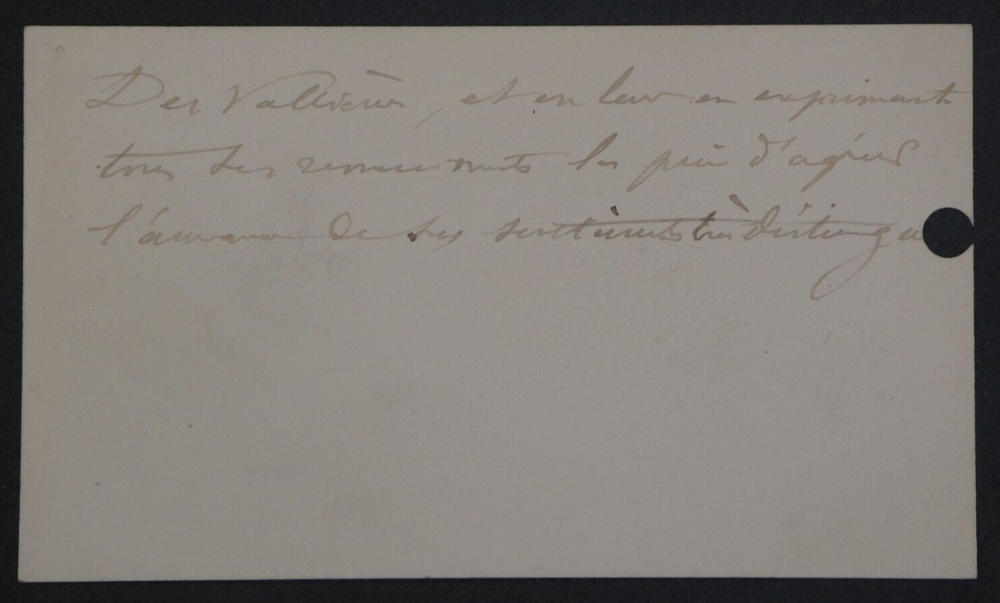 Des Vallières, et en leur en exprimant
tous ses remerciements les prie d'agréer
l'assurance de ses sentiments très distingu